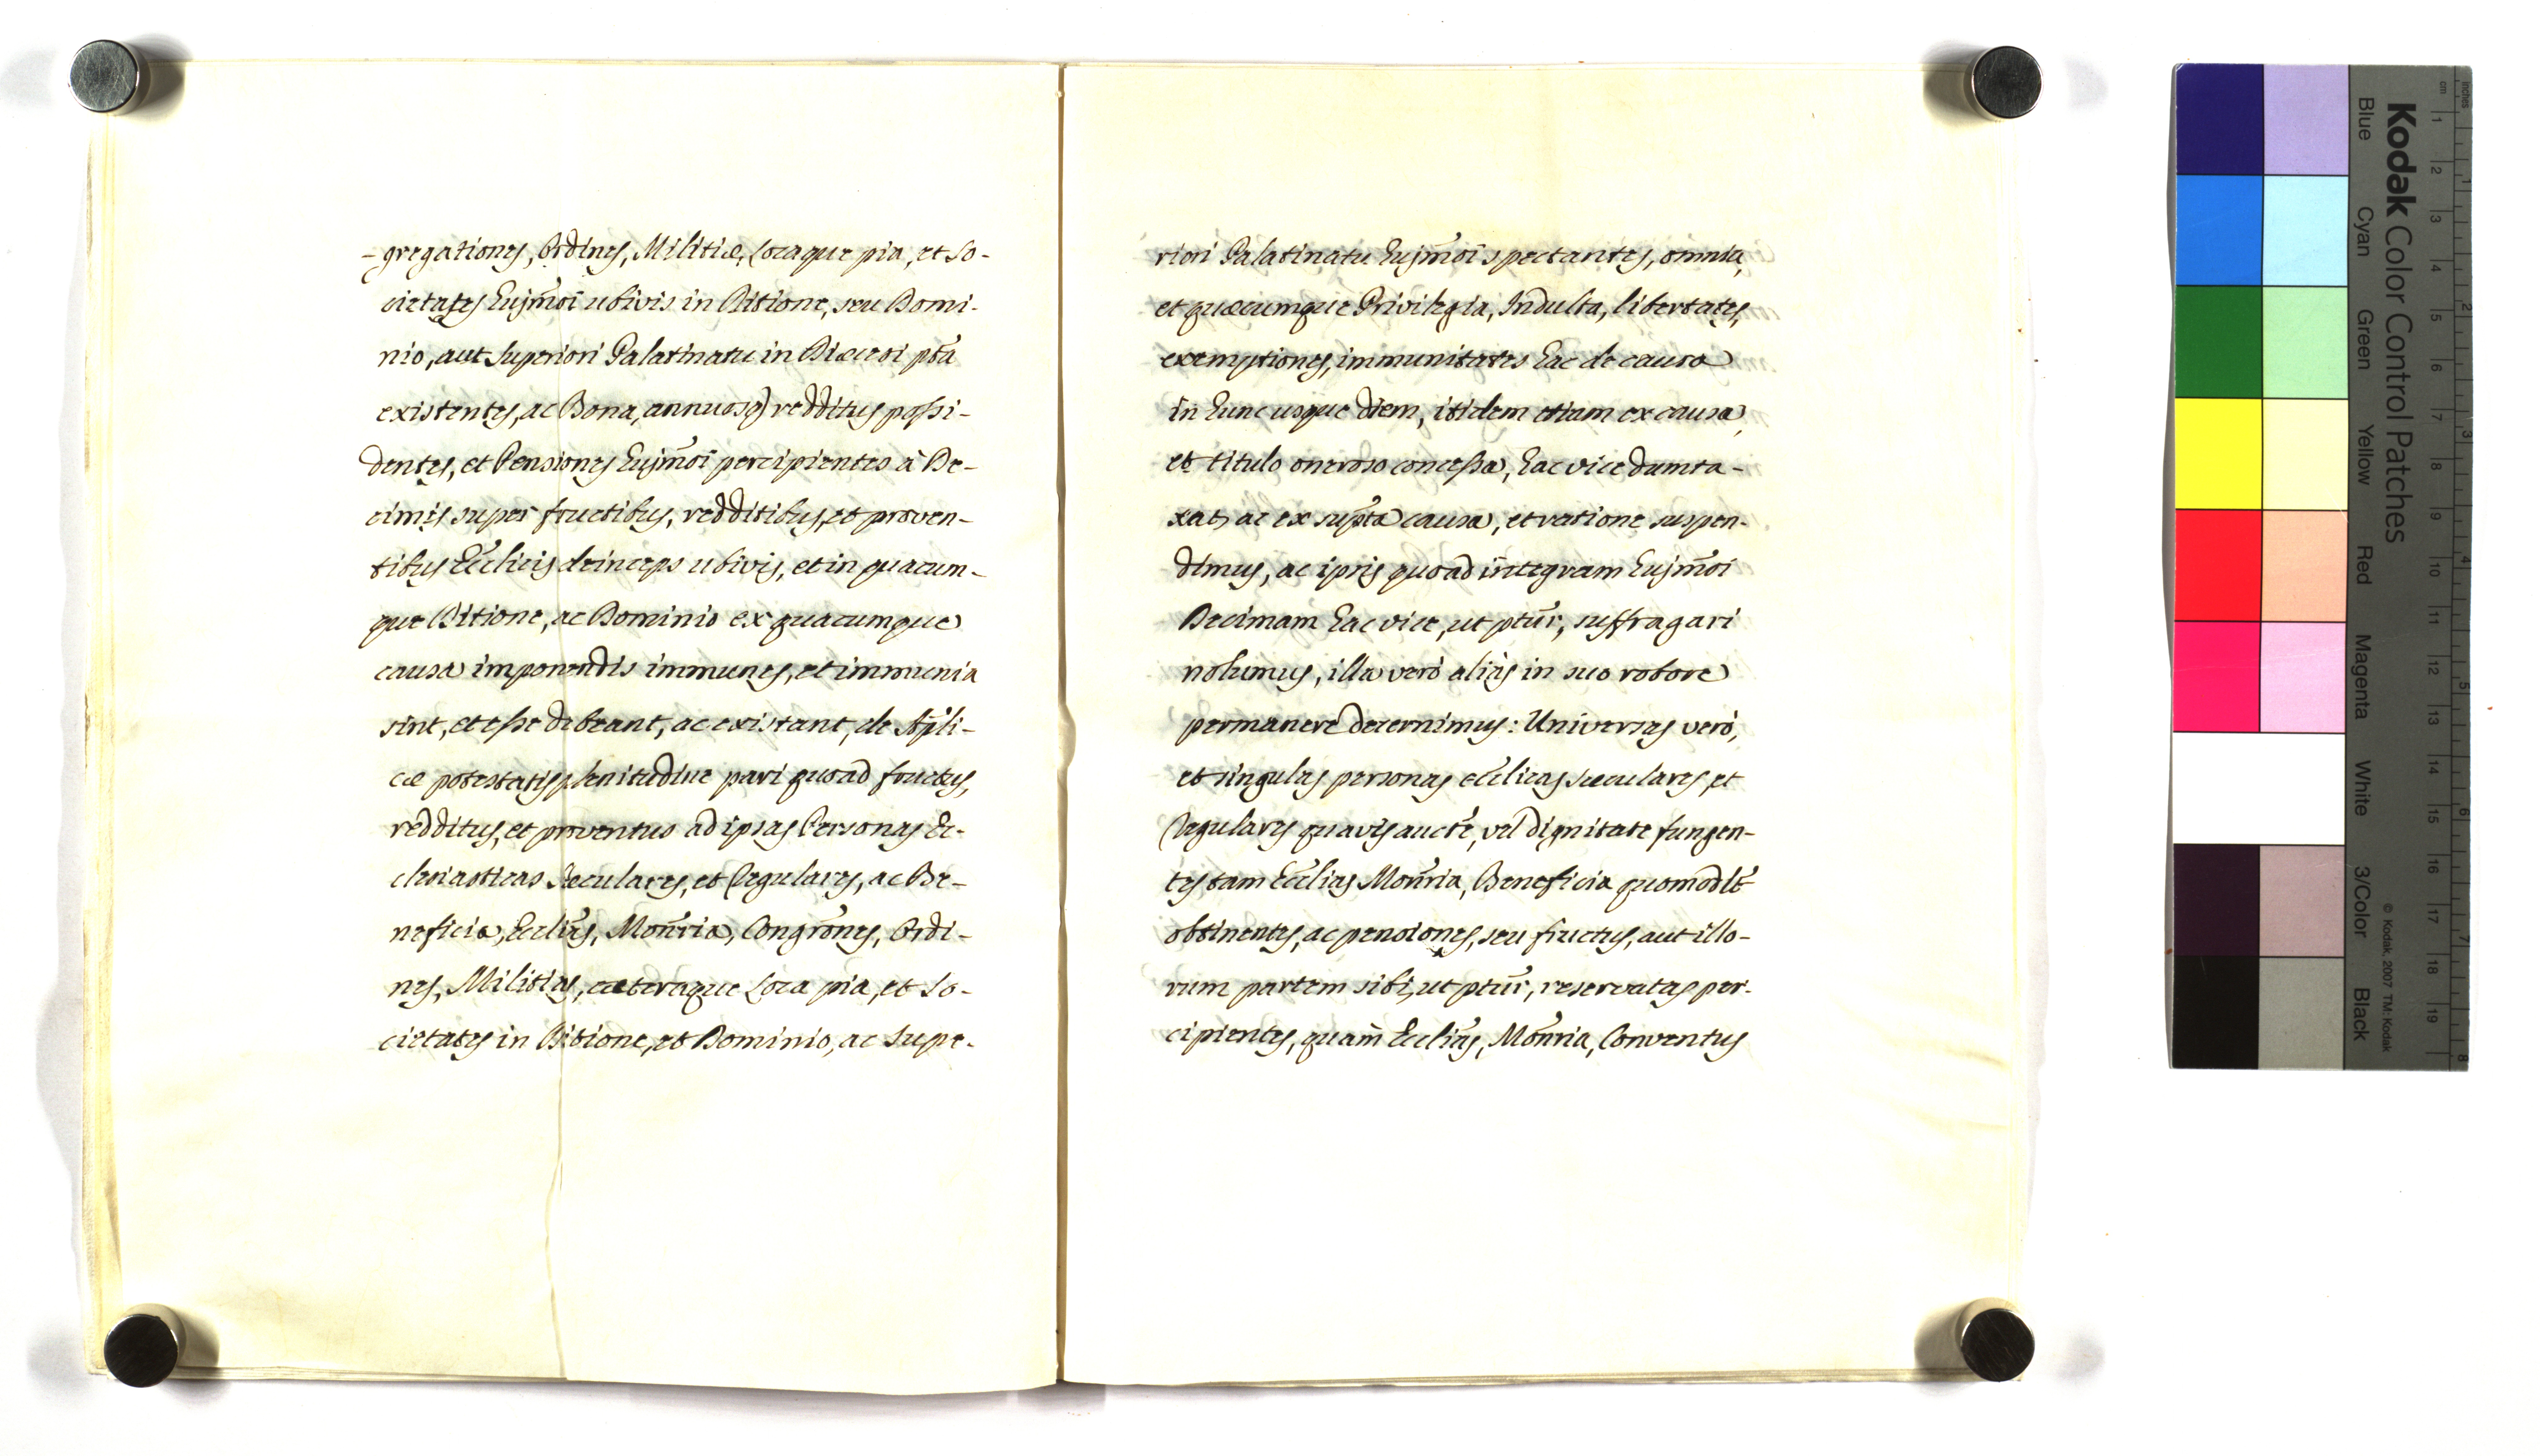 -gregationes, Ordines, Militiæ, Locaque pia, et So-
cietates hujm̄oi ubivis in Ditione, seu Domi-
nio, aut Superiori Palatinatu in Diœcesi pt̄a
existentes, ac Bona, annuosq) redditus possi-
dentes, et Pensiones hujm̄oi percipientes à De-
cimis super fructibus, redditibus, et proven-
tibus Ecc̄licis deinceps ubivis, et in quacum-
que Ditione, ac Dominio ex quacumque
causa imponendis immunes, et immunia
sint, et esse debeant, ac existant, de Ap̄li-
cæ potestatis plenitudine pari quoad fructus,
redditus, et proventus ad ipsas Personas Ec-
clesiasticas Sæculares, et Regulares, ac Be-
neficia, Ecclīas, Monr̄ia, Congrōnes, Ordi-
nes, Militias, cæteraque Loca pia, et So-
cietates in Ditione, et Dominio, ac Supe-
riori Palatinatu hujm̄oi spectantes, omnia,
et quæcumque Privilegia, Indulta, libertates,
exemptiones, immunitates hac de causa
in hunc usque diem, itidem etiam ex causa,
et titulo oneroso concessa, hac vice dumta-
xat, ac ex sup̄ta causa, et ratione suspen-
dimus, ac ipsis quoad integram hujm̄oi
Decimam hac vice, ut ptūr, suffragari
nolumus, illa verò aliàs in suo robore
permanere decernimus: Universas verò,
et singulas personas ecc̄licas sæculares, et
Regulares quavis aucte̅, vel dignitate fungen-
tes tam Ecc̄lias Monr̄ia, Beneficia quomodlt̄
obtinentes, ac pensiones, seu fructus, aut illo-
rum partem sibi, ut ptūr, reservatas per-
cipientes, quam̀ Ecclīas, Monr̄ia, Conventus